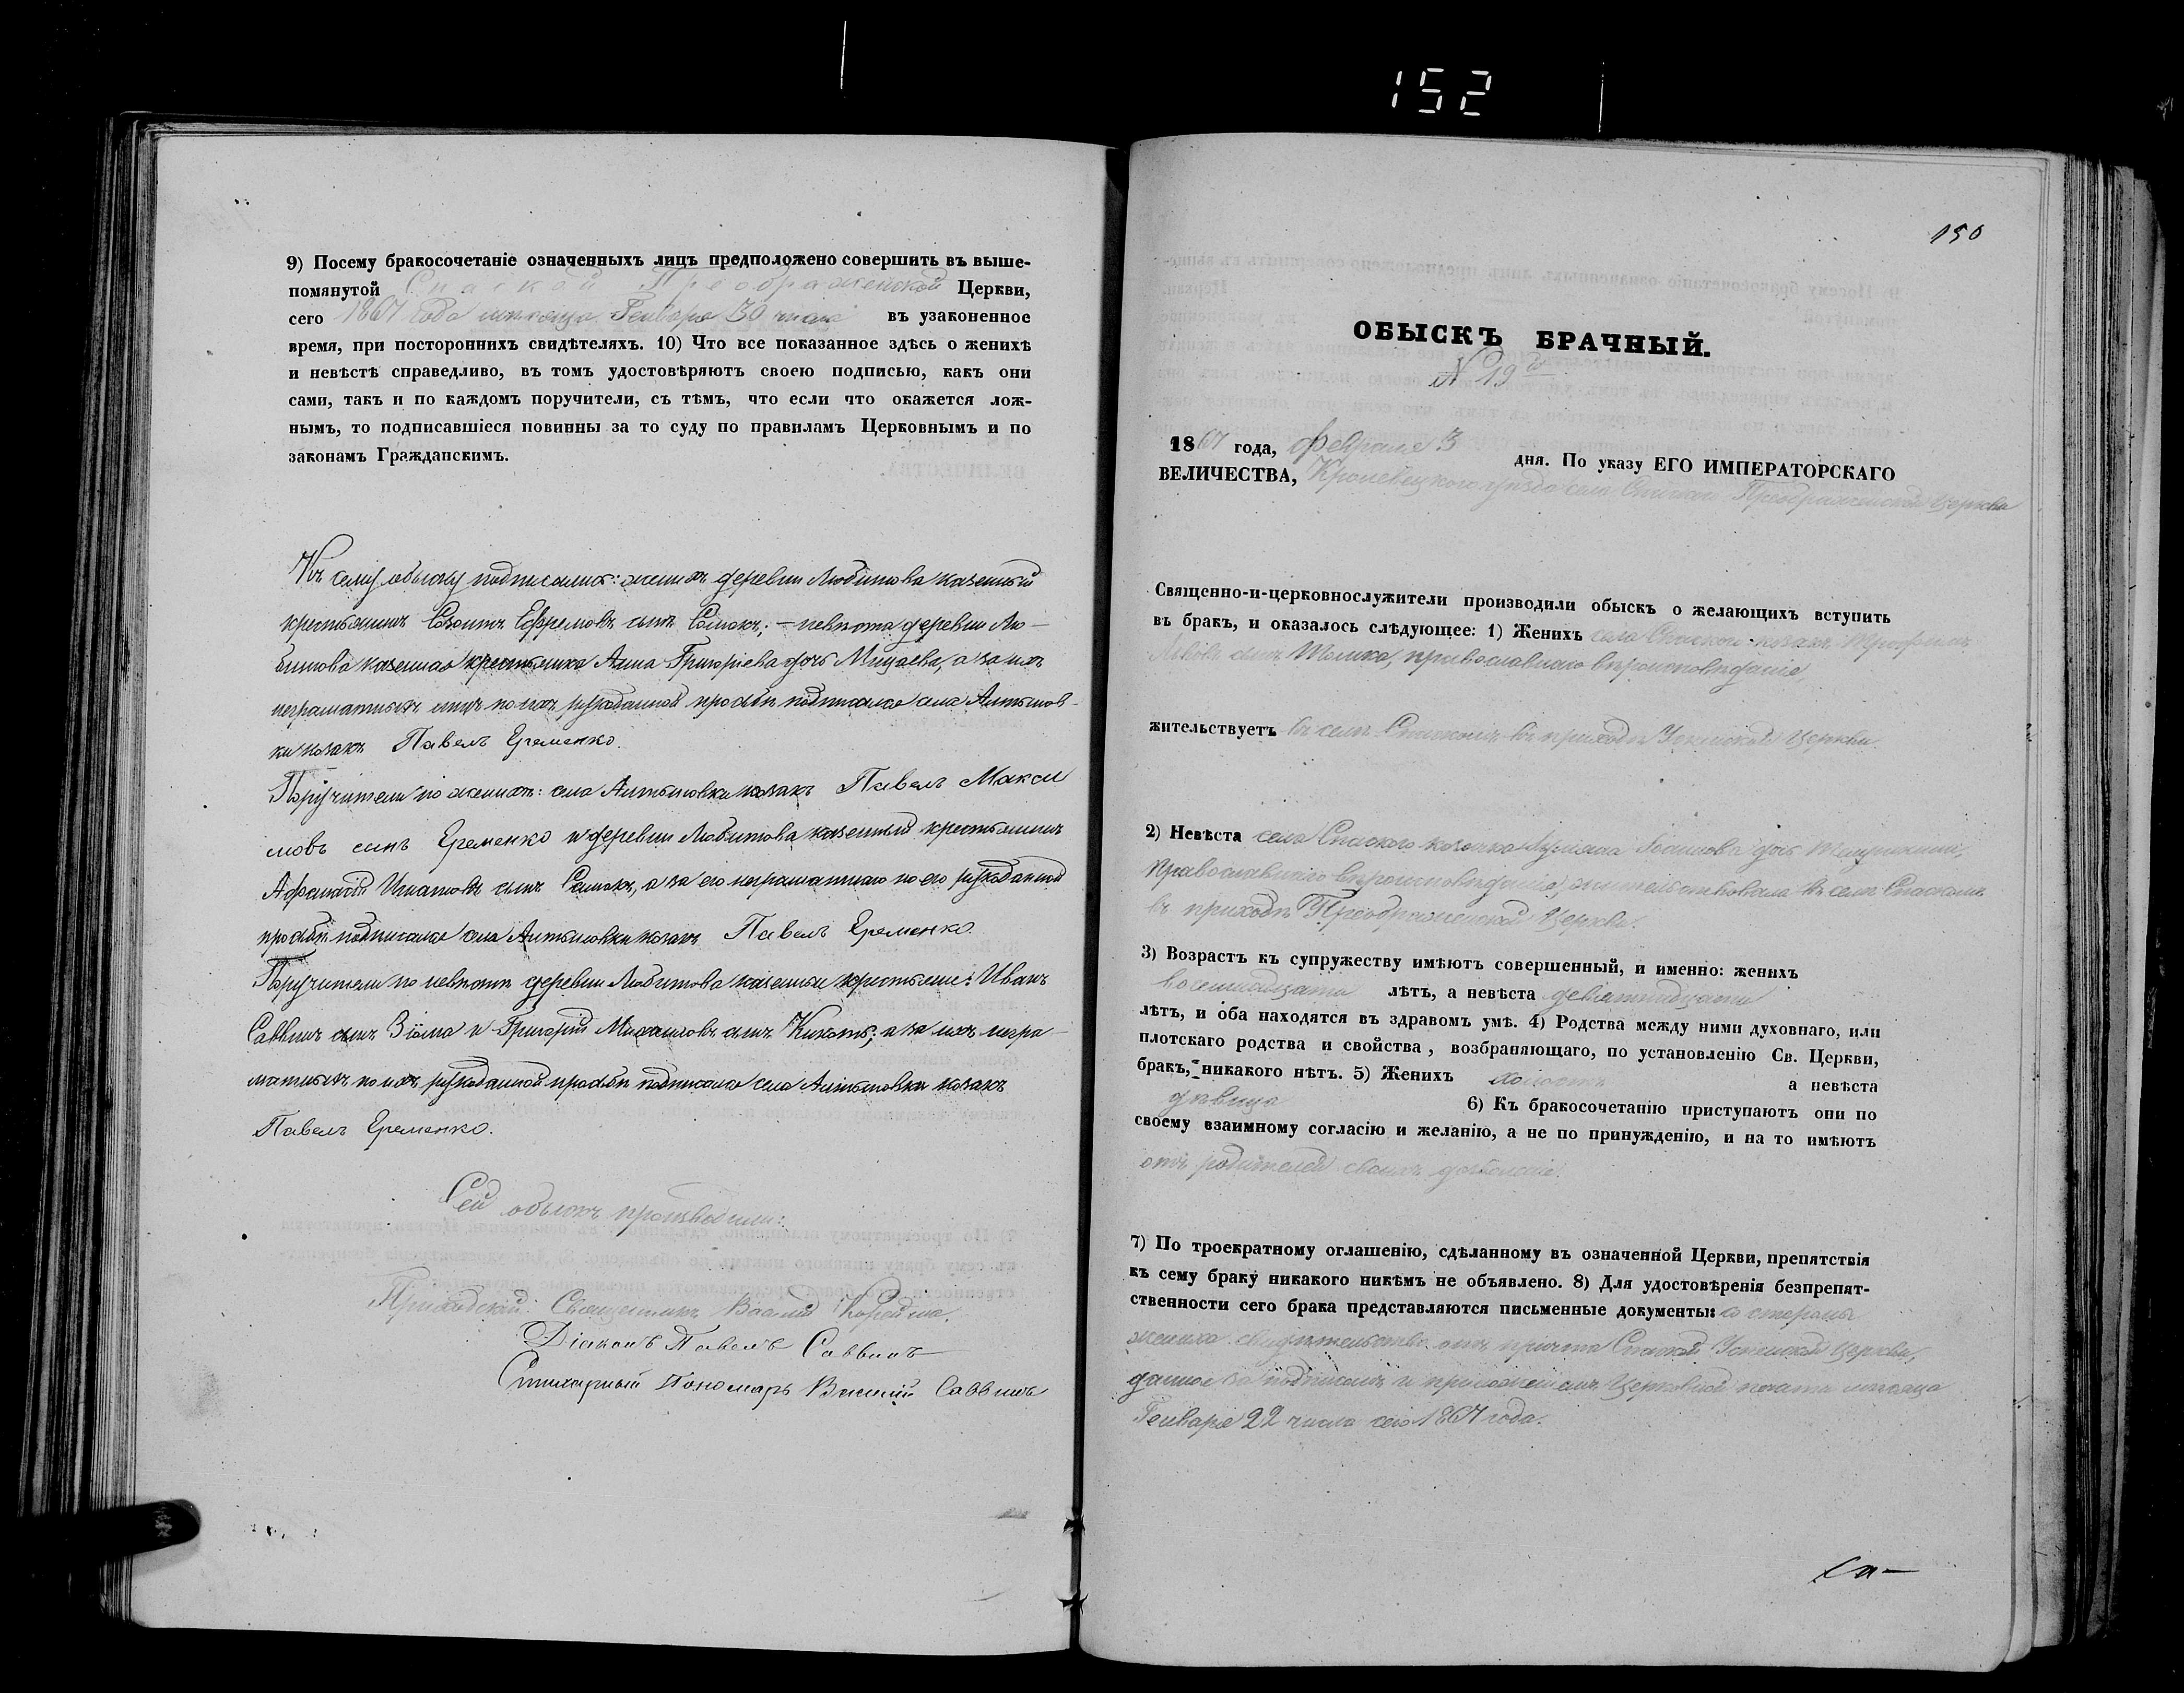 152
9) Посему бракосочетаніе означенныхъ лицъ предположено совершить въ выше-
помянутой Спаской Преображенской Церкви,
сего 1867 года мѣсяца Генваря 30 числа въ узаконенное
время, при постороннихъ свидѣтеляхъ. 10) Что все показанное здѣсь о женихѣ
и невѣстѣ справедливо, въ томъ удостовѣряютъ своею подписью, какъ они
сами, такъ и по каждомъ поручители, съ тѣмъ, что если что окажется лож-
нымъ, то подписавшіеся повинны за то суду по правиламъ Церковнымъ и по
законамъ Гражданскимъ.
Къ сему обыску подписались: женихъ деревни Любитова казенный
крестьянинъ Созонтъ Ефремовъ сынъ Самокъ; – невѣста деревни Лю-
битова казенная крестьянка Анна Григоріева дочь а за ихъ
неграматныхъ по ихъ рукоданной прозьбѣ подписался села Алтынов-
ки козакъ Павелъ Еременко.
Поручители по женихѣ: села Алтыновки козакъ Павелъ Макси
мовъ сынъ Еременко и деревни Любитова казенный крестьянинъ
Афанасій Игнатовъ сынъ Самокъ, а за его неграматнаго по его рукоданной
прозьбѣ подписался села Алтыновки козакъ Павелъ Еременко.
Поручители по невѣстѣ деревни Любитова казенные крестьяне: Иванъ
Саввинъ сынъ Зіома и Григорій Михайловъ сынъ Кикоть; а за ихъ негра-
матныхъ по ихъ рукоданной прозьбѣ подписался села Алтыновки козакъ
Павелъ Еременко.
Сей обыскъ производили:
Приходскій Священникъ Василій
Діаконъ Павелъ Саввинъ
Стихарный Пономарь Василій Саввинъ
150
ОБЫСКЪ БРАЧНЫЙ.
№ 19й
1867 года, Февраля 3 дня. По указу ЕГО ИМПЕРАТОРСКАГО
ВЕЛИЧЕСТВА, Кролевецкого уѣзда села Спаского Преображенской Церкви
Священно-и-церковнослужители производили обыскъ о желающихъ вступить
въ бракъ, и оказалось слѣдующее: 1) Женихъ села Спаского козакъ Трофимъ
сынъ православнаго вѣроисповѣданія,
жительствуетъ въ селѣ Спаскомъ въ приходѣ Успенской Церкви.
2) Невѣста села Спаского козачка Іоаннова дочь
православнаго вѣроисповѣданія, жительствовала въ селѣ Спаскомъ
въ приходѣ Преображенской Церкви.
3) Возрастъ къ супружеству имѣютъ совершенный, и именно: женихъ
восемнадцати лѣтъ, а невѣста девятнадцати
лѣтъ, и оба находятся въ здравомъ умѣ. 4) Родства между ними духовнаго, или
плотскаго родства и свойства, возбраняющаго, по установленію Св. Церкви,
бракъ, никакого нѣтъ. 5) Женихъ холостъ а невѣста
дѣвица 6) Къ бракосочетанію приступаютъ они по
своему взаимному согласію и желанію, а не по принужденію, и на то имѣютъ
отъ родителей своихъ дозволеніе.
7) По троекратному оглашенію, сдѣланному въ означенной Церкви, препятствія
къ сему браку никакого никѣмъ не объявлено. 8) Для удостовѣренія безпрепят-
ственности сего брака представляются письменные документы: со стороны
жениха свидѣтельство отъ причта Спаской Успенской Церкви,
данное за подписомъ и приложеніемъ Церковной печати мѣсяца
Генваря 22 числа сего 1867 года.